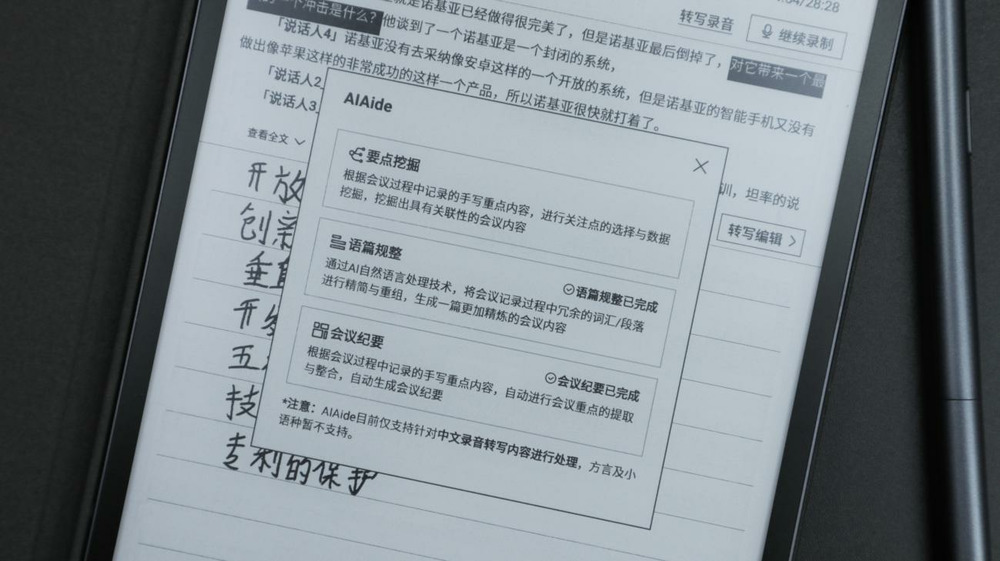 就是诺基亚已经做得很完美了，但是诺基亚最后倒掉了，
转写录音
/28:28
继续录制
个冲击是什么？
他谈到了一个诺基亚是一个封闭的系统，
对它带来一个最
「说话人4」诺基亚没有去采纳像安卓这样的一个开放的系统，但是诺基亚的智能手机又没有
做出像苹果这样的非常成功的这样一个产品，所以诺基亚很快就打着了。
「说话人2
「说话人3
查看全文
训，坦率的说
转写编辑
AIAide
要点挖掘
根据会议过程中记录的手写重点内容，进行关注点的选择与数据
挖掘，挖掘出具有关联性的会议内容
语篇规整
语篇规整已完成
通过AI自然语言处理技术，将会议记录过程中冗余的词汇/段落
进行精简与重组，生成一篇更加精炼的会议内容
会议纪要
会议纪要已完成
根据会议过程中记录的手写重点内容，自动进行会议重点的提取
与整合，自动生成会议纪要
*注意：AIAide目前仅支持针对中文录音转写内容进行处理，方言及小
语种暂不支持。
开放
创新
垂直
开发
五
技
专利的保护